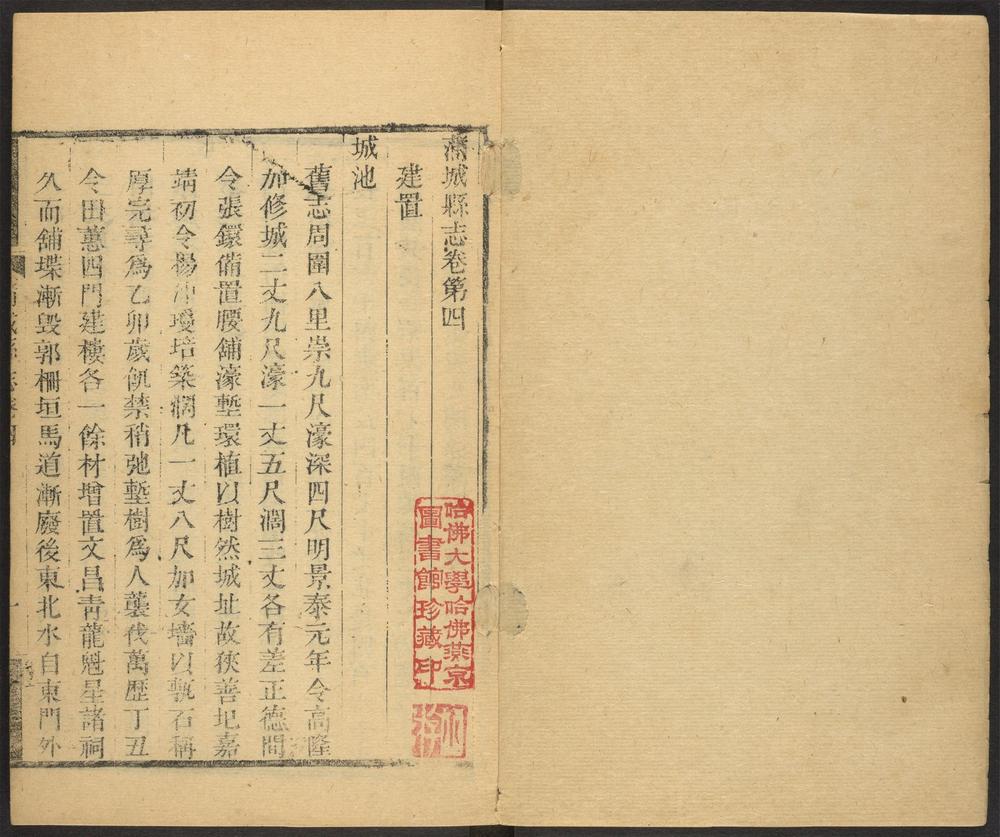 城縣志卷第四
建置
城池
舊志周圍八里崇九尺濠深四尺明景泰元年令高隆
加修城二丈九尺濠一丈五尺濶三丈各有差正德間
令張鐶備置腰舖濠塹環植以樹然城址故狹善圮嘉
靖初令楊瓊培築濶凡一丈八尺加女墻以甎石稱
厚完尋爲乙卯歲飢禁稍弛塹樹爲人襲伐萬歷丁丑
令田蕙四門建樓各一餘材增置文昌青龍魁星諸祠
久而舖堞漸毀郭柵垣馬道漸廢後東北水自東門外
哈佛大學哈佛燕京
圖書館珍藏印